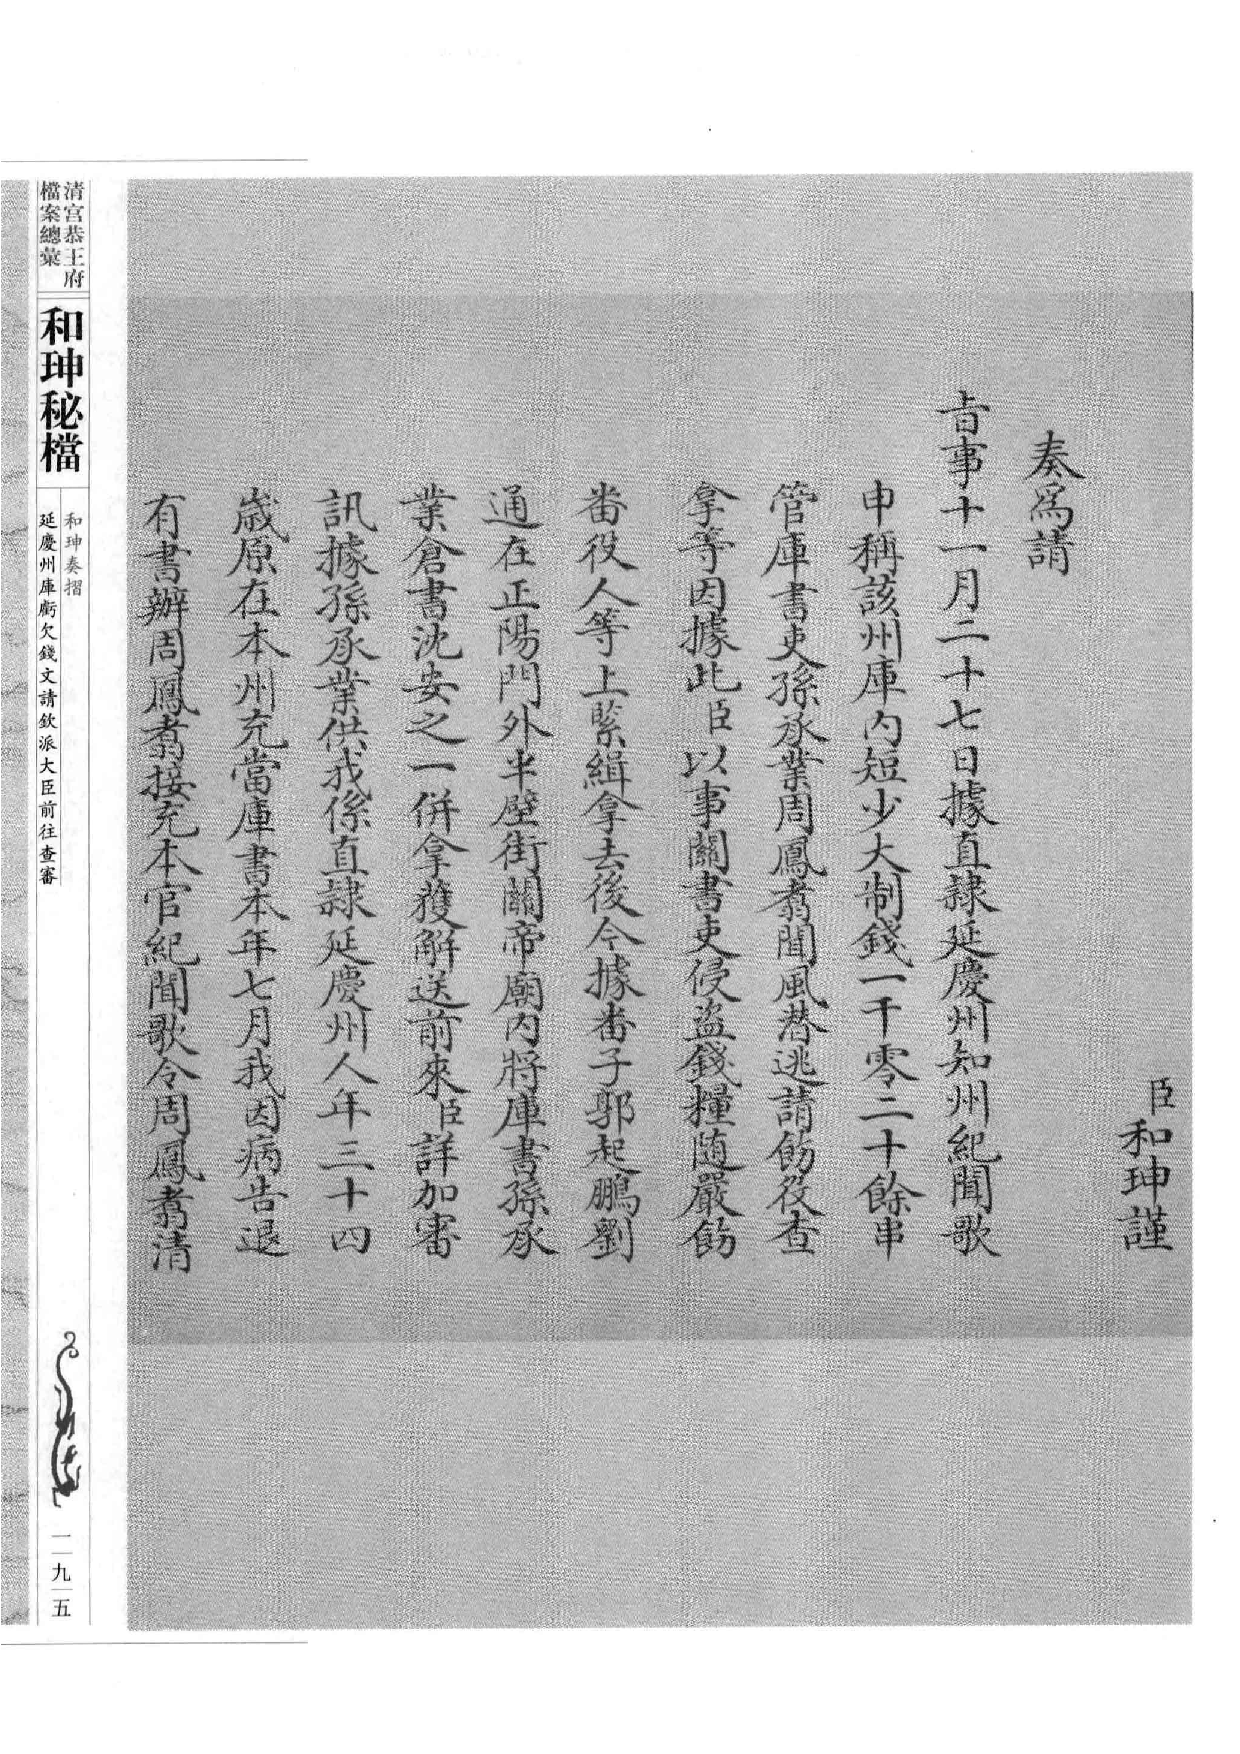 臣和珅謹
奏爲請
旨事十一月二十七日據直隸延慶州知州紀聞歌
申稱該州庫內短少大制錢一千零二十餘串
管庫書吏孫承業周鳳翥聞風潛逃請飭役查
拿等因據此臣以事關書吏侵盜錢糧隨嚴飭
番役人等上緊緝拿去後今據番子郭起鵬劉
通在正陽門外半壁街關帝廟內將庫書孫承
業倉書沈安之一併拿獲解送前來臣詳加審
訊據孫承業供我係直隸延慶州人年三十四
歲原在本州充當庫書本年七月我因病告退
有書辦周鳳翥接充本官紀聞歌令周鳳翥清
清宮恭王府
檔案總彙
和珅秘檔
和珅奏摺
延慶州庫虧欠錢文請欽派大臣前往查審
一九五